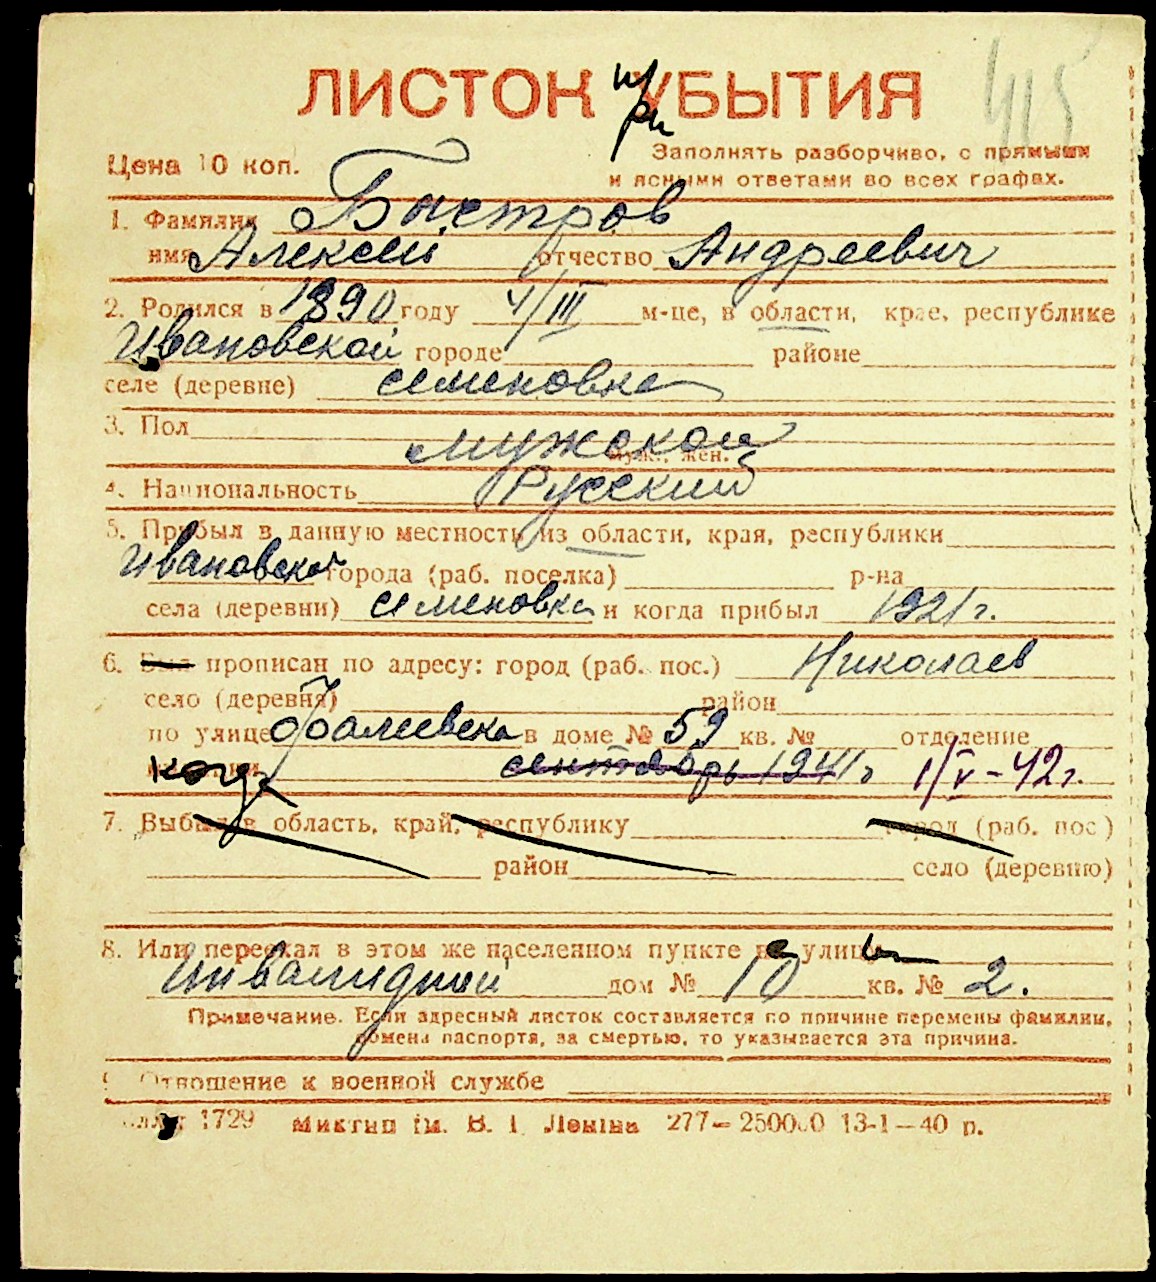 415
ЛИСТОК УБЫТИЯ
при
Цена 10 коп.
Заполнять разборчиво, с прямыми
и ясными ответами во всех графах.
1. Фамилия Быстров
имя Алексей отчество Андреевич
2. Родился в 1890 году 4/III м-це, в области, крае, республике
Ивановской городе районе
селе (деревне) семеновка
3. Пол мужской
муж., жен.
4. Национальность Русский
5. Прибыл в данную местность из области, края, республики
Ивановской города (раб. поселка) р-на
села (деревни) семеновка и когда прибыл 1921 г.
6. Был прописан по адресу: город (раб. пос.) Николаев
село (деревня) район
по улице Фалеевская в доме № 59 кв. № отделение
когда сентябрь 1941 г 1/V-42 г.
7. Выбыл в область, край, республику город (раб. пос)
район село (деревню)
8. Или переехал в этом же населенном пункте с улицы
Инвалидной дом № 10 кв. № 2.
Примечание. Если адресный листок составляется по причине перемены фамилии,
обмена паспорта, за смертью, то указывается эта причина.
9. Отношение к военной службе
1729 Миктип ім. В. І. Леніна 277—250000 13-1—40 р.